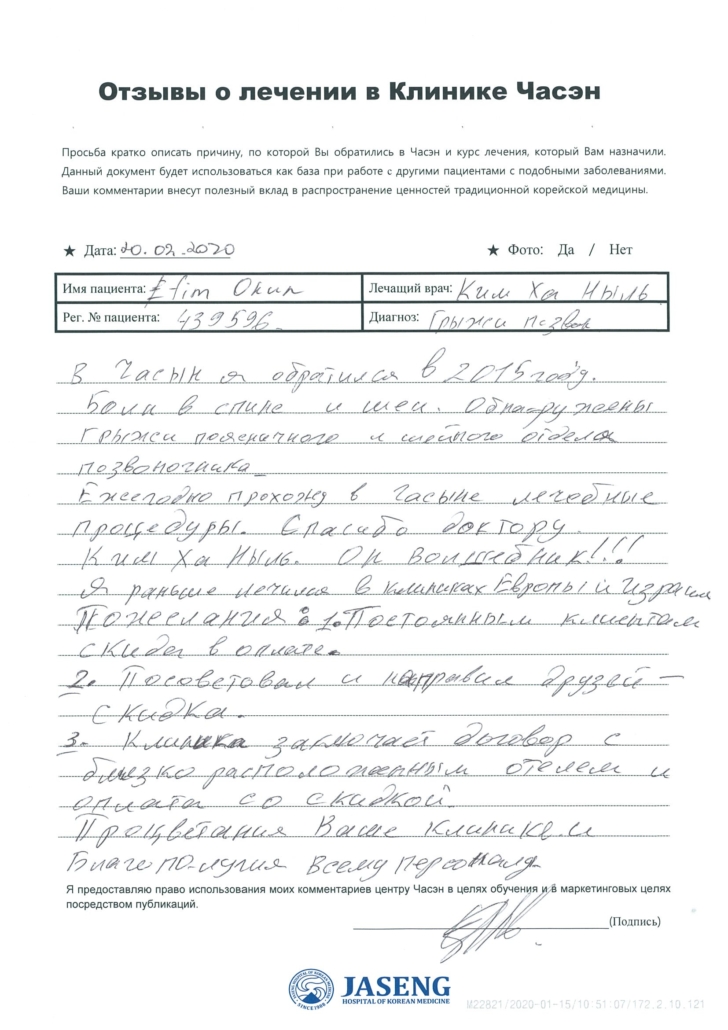 Отзывы о лечении в Клинике Часэн
Просьба кратко описать причину, по которой Вы обратились в Часэн и курс лечения, который Вам назначили.
Данный документ будет использоваться как база при работе с другими пациентами с подобными заболеваниями.
Ваши комментарии внесут полезный вклад в распространение ценностей традиционной корейской медицины.
★ Дата: 20.02.2020 ★ Фото: Да / Нет
Имя пациента: Efim Окун Лечащий врач: Ким Ха Ныль
Рег. № пациента: 439596 Диагноз: Грыжи позвон
В Часын я обратился в 2015 году.
Боли в спине и шеи. Обнаружены
Грыжи поясничного и шейного отдела
позвоночника
Ежегодно прохожу в Часыне лечебные
процедуры. Спасибо доктору
Ким Ха Ныль. Он волшебник!!!
Я раньше лечился в клиниках Европы и Израиля
Пожелания: 1. Постоянным клиентам
скидка в оплате.
2. Посоветовал и направил друзей —
скидка.
3. Клиника заключает договор с
близко расположенным отелем и
оплата со скидкой.
Процветания Ваше клинике и
Благополучия всему персоналу
Я предоставляю право использования моих комментариев центру Часэн в целях обучения и в маркетинговых целях
посредством публикаций.
(Подпись)
JASENG
HOSPITAL OF KOREAN MEDICINE
M22821/2020-01-15/10:51:07/172.2.10.121